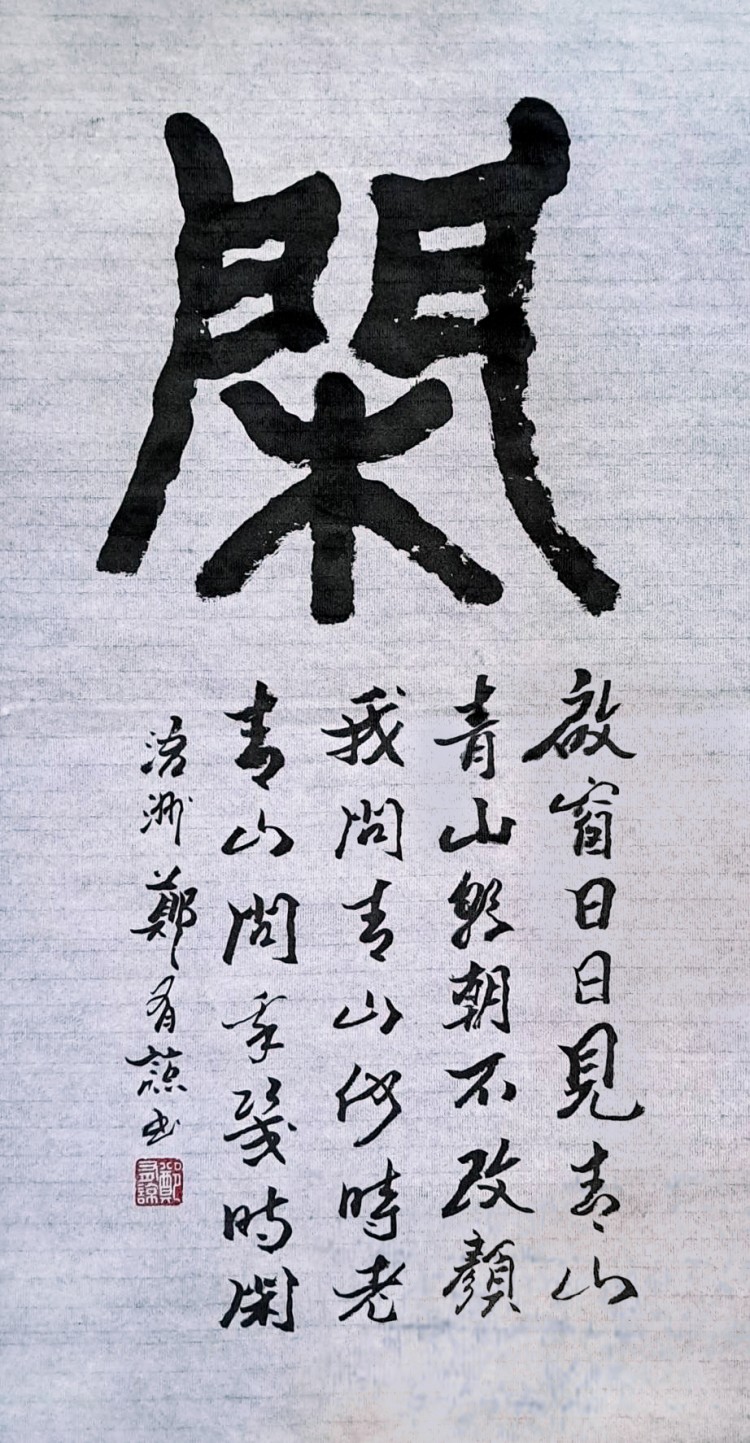 閑
啟窗日日見青山
青山朝朝不改顏
我問青山何時老
青山問我幾時閑
浯洲鄭有諒書
鄭有諒